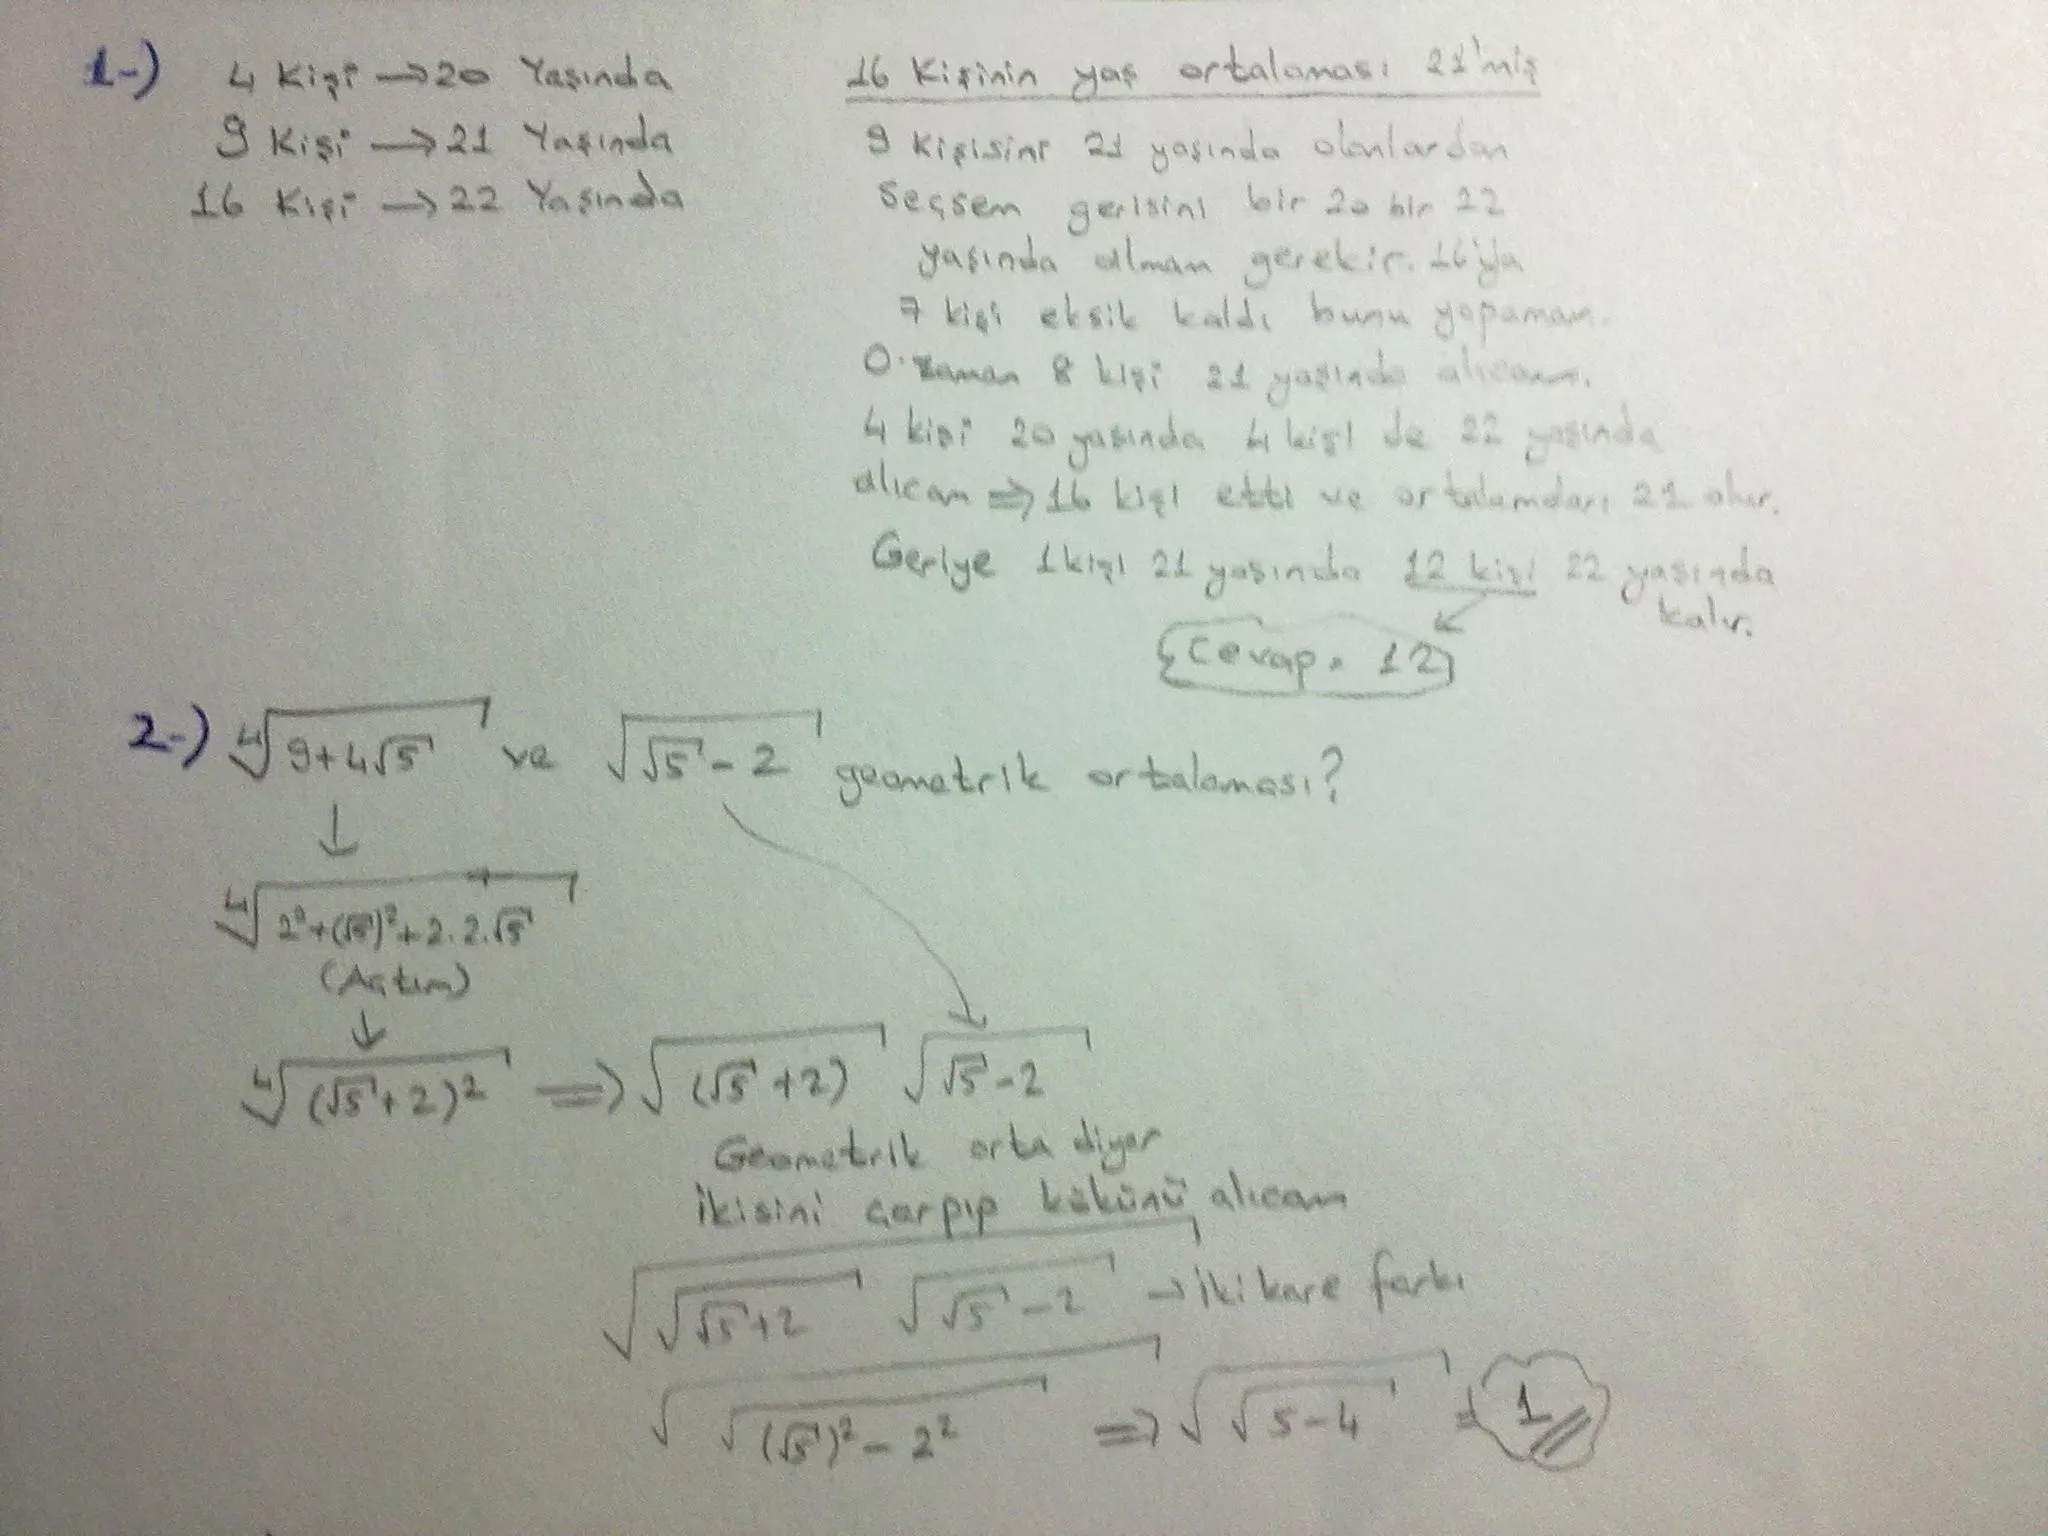 1-) 4 Kişi → 20 Yaşında
9 Kişi → 21 Yaşında
16 Kişi → 22 Yaşında
16 Kişinin yaş ortalaması 21'miş
9 Kişisini 21 yaşında olanlardan
Seçsem gerisini bir 20 bir 22
yaşında alman gerekir. 16'ya
7 kişi eksik kaldı bunu yapamam.
O zaman 8 kişi 21 yaşında alıcam.
4 kişi 20 yaşında 4 kişi de 22 yaşında
alıcam ⇒ 16 kişi etti ve ortalamaları 21 olur.
Geriye 1 kişi 21 yaşında 12 kişi 22 yaşında
kalır.
Cevap = 12
2-) ⁴√(9+4√5) ve √(√5-2) geometrik ortalaması?
⁴√(2²+(√5)²+2.2.√5)
(Açtım)
⁴√((√5+2)²) ⇒ √(√5+2) √(√5-2)
Geometrik orta diyor
ikisini çarpıp kökünü alıcam
√(√(√5+2) √(√5-2)) → iki kare farkı
√(√((√5)²-2²)) ⇒ √(√(5-4)) = 1